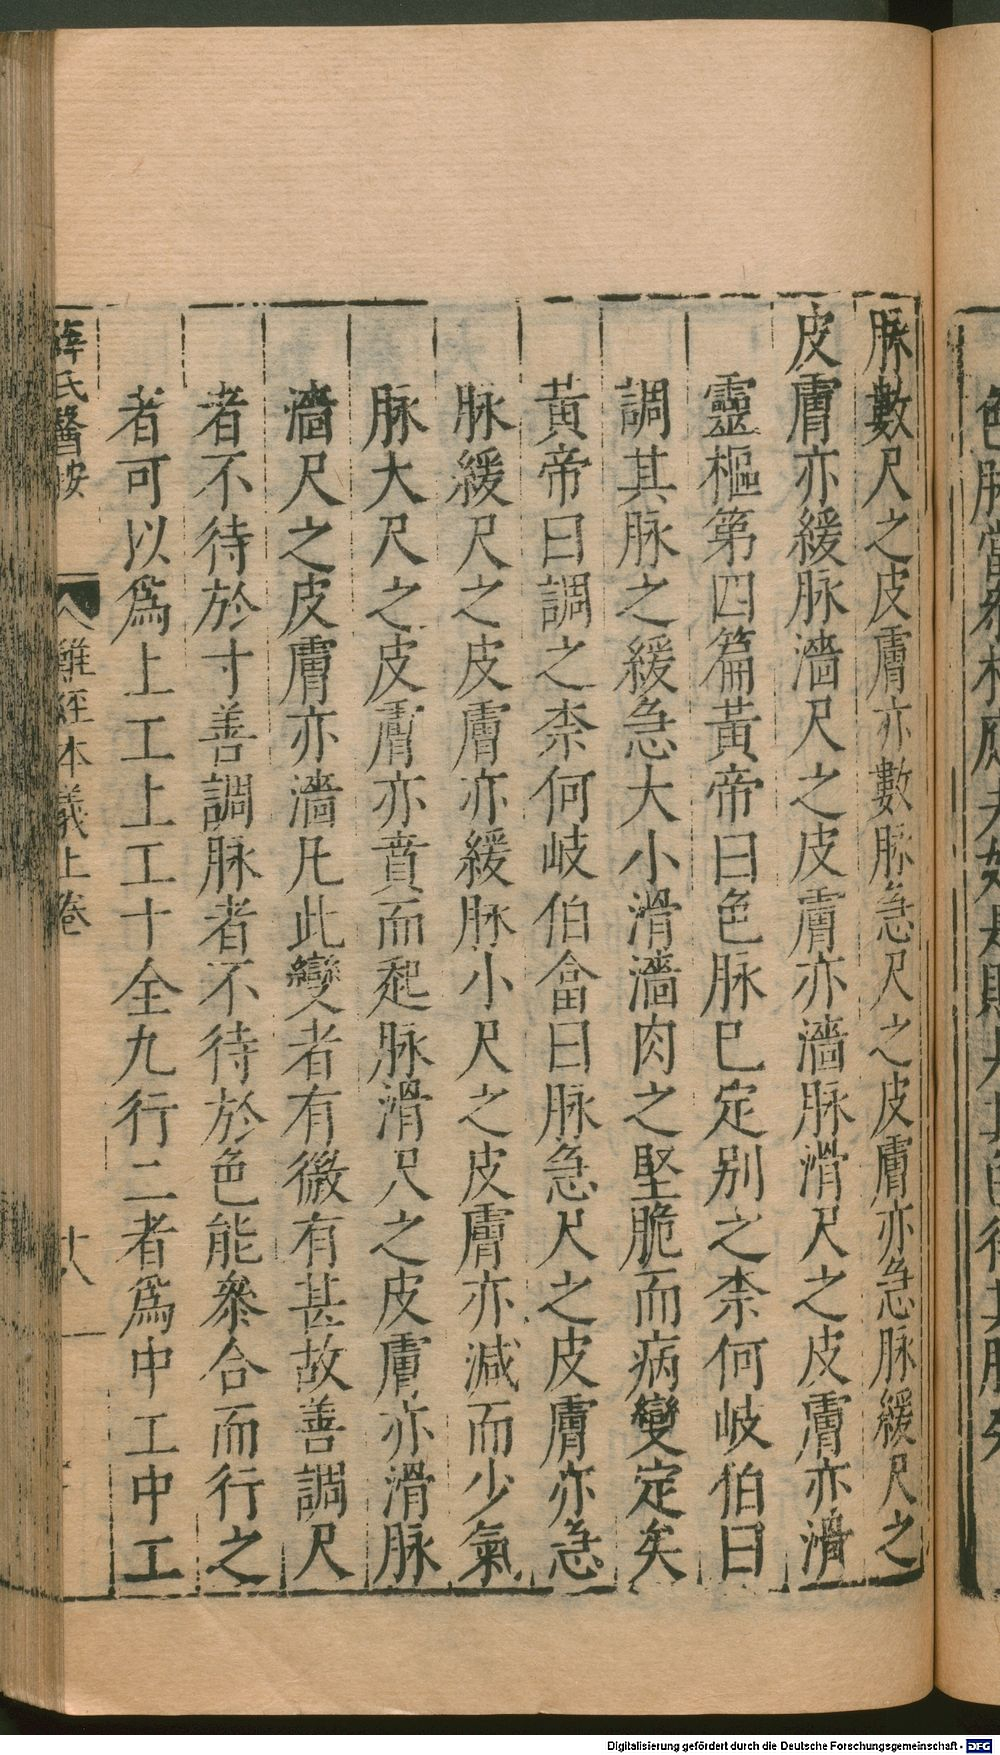 脉數尺之皮膚亦數脉急尺之皮膚亦急脉緩尺之
皮膚亦緩脉濇尺之皮膚亦濇脉滑尺之皮膚亦滑
靈樞第四篇黃帝曰色脉已定别之柰何岐伯曰
調其脉之緩急大小滑濇肉之堅脆而病變定矣
黃帝曰調之柰何岐伯畣曰脉急尺之皮膚亦急
脉緩尺之皮膚亦緩脉小尺之皮膚亦減而少氣
脉大尺之皮膚亦賁而起脉滑尺之皮膚亦滑脉
濇尺之皮膚亦濇凡此變者有微有甚故善調尺
者不待於寸善調脉者不待於色能叅合而行之
者可以爲上工上工十全九行二者爲中工中工
薛氏醫按 難經本義上卷 十八
Digitalisierung gefördert durch die Deutsche Forschungsgemeinschaft - DFG